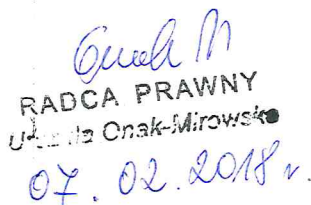 RADCA PRAWNY
Onak-Mirowska
07.02.2018 r.